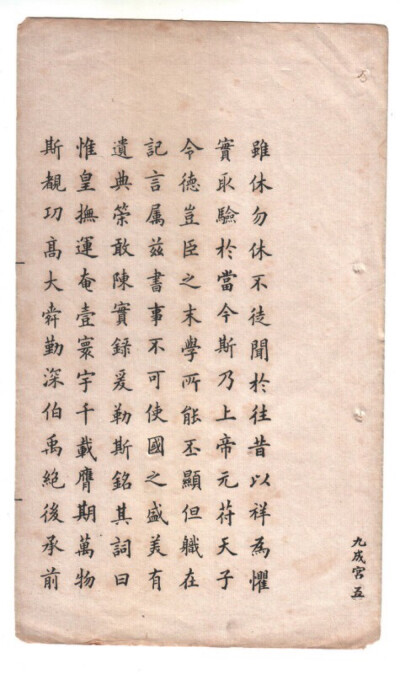 雖休勿休不徒聞於往昔以祥為懼
實取驗於當今斯乃上帝元苻天子
令德豈臣之末學所能丕顯但軄在
記言属茲書事不可使國之盛美有
遺典策敢陳實録爰勒斯銘其詞曰
惟皇撫運奄壹寰宇千載膺期萬物
斯覩功髙大舜勤深伯禹絶後承前
九成宮五